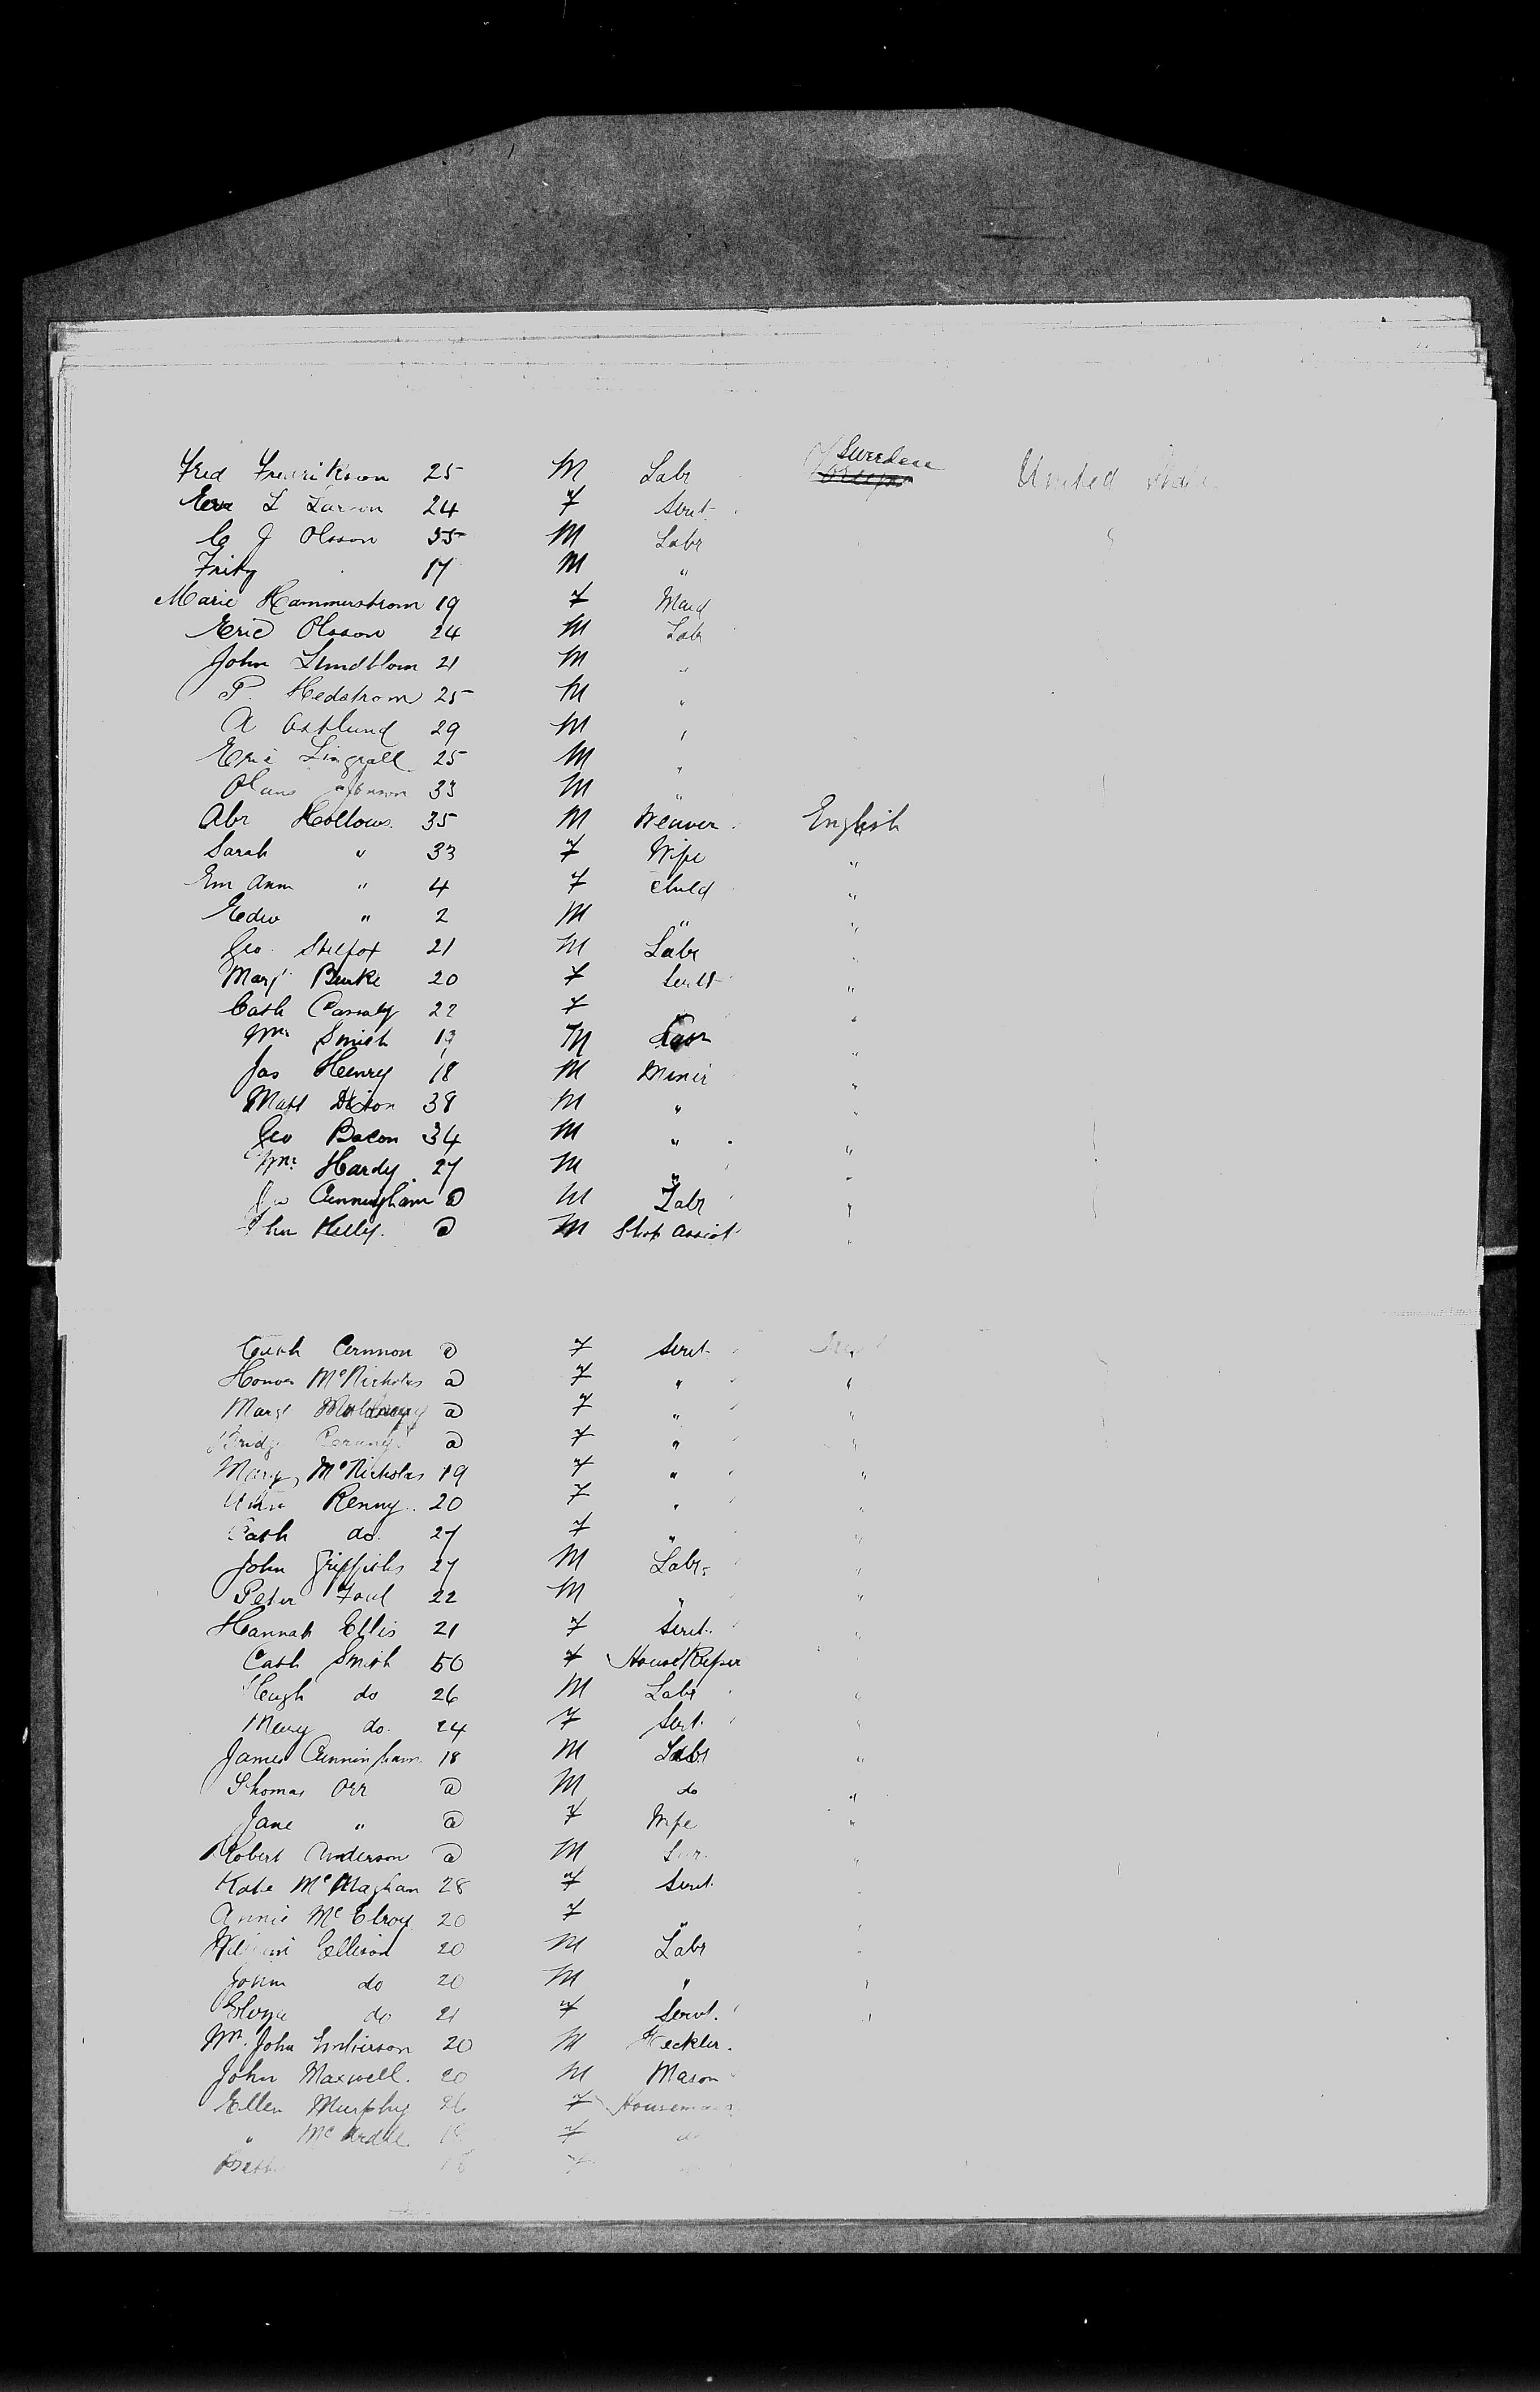 Fred Fredrikson 25 M Labr Sweden United States
Eva L Larson 24 F Servt
C J Olsson 35 M Labr
Fritz 17 M "
Marie Hammerstrom 19 F Maid
Eric Olsson 24 M Labr
John Lundblom 21 M "
P. Hedstrom 25 M "
A Ostlund 29 M "
Eric Lingvall 25 M "
Olaus 33 M "
Abr Hollows 35 M Weaver English
Sarah " 33 F Wife "
Em Ann " 4 F Child "
Edw " 2 M " "
Geo. Stelfox 21 M Labr "
Margt Burke 20 F Servt "
Cath Cassidy 22 F "
Wm Smith 19 M Labr "
Jas Henry 18 M Miner "
Matt Dixon 38 M " "
Geo Bacon 34 M " "
Wm Hardy 27 M " "
Cunningham @ M Labr "
John Kelly @ M Shop Assist "
Cath Cannon @ F Servt
Honor McNicholas @ F " "
Margt @ F " "
Bridgt @ F " "
Mary McNicholas 19 F " "
Kenny 20 F " "
Cath do. 27 F " "
John Griffiths 27 M Labr "
Peter 22 M " "
Hannah Ellis 21 F Servt "
Cath Smith 50 F HouseKeeper
Hugh do 26 M Labr "
Mary do. 24 F Servt. "
James Cunningham 18 M Labr "
Thomas Orr @ M do "
Jane " @ F Wife "
Robert Anderson @ M "
Kate 28 F Servt
Annie McElroy 20 F "
William Ellison 20 M Labr "
John do 20 M " "
Eliza do 21 F Servt. "
Wm. John 20 M Heckler.
John Maxwell. 20 M Mason
Ellen Murphy 26 F Housemaid
" McArdle F do
F